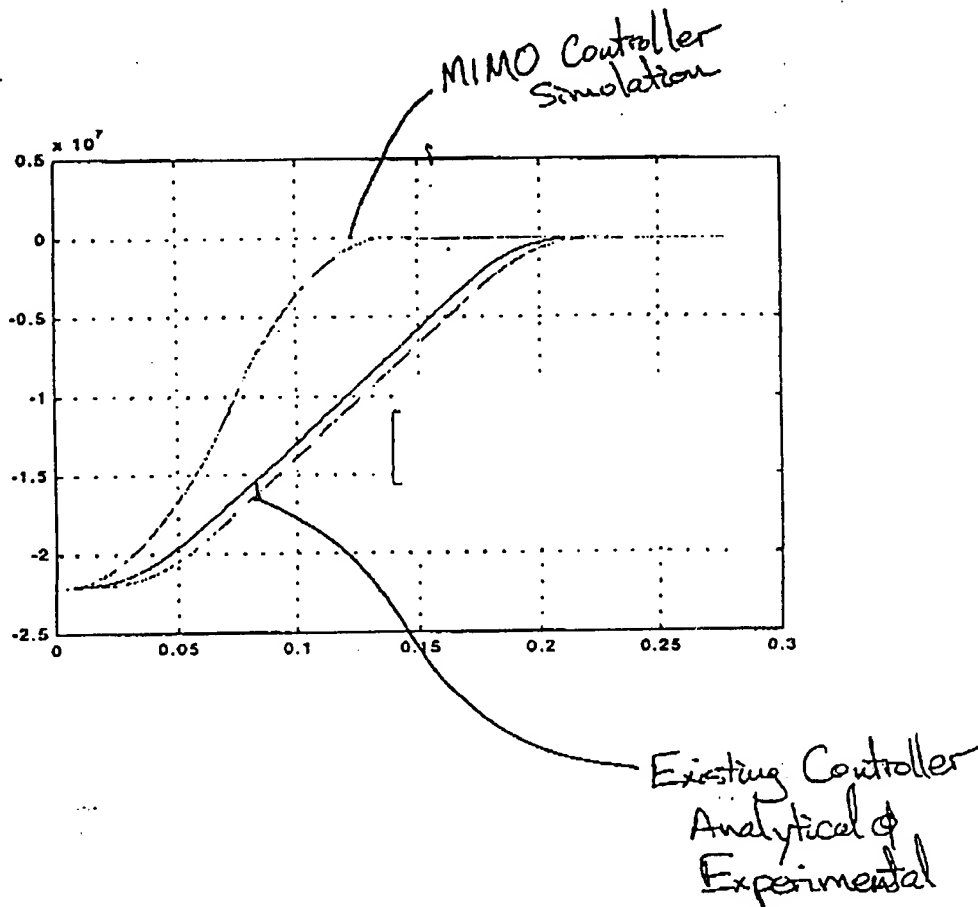 MIMO Controller
Simulation
x 10^7
0.5
0
-0.5
-1
-1.5
-2
-2.5
0 0.05 0.1 0.15 0.2 0.25 0.3
Existing Controller
Analytical &
Experimental